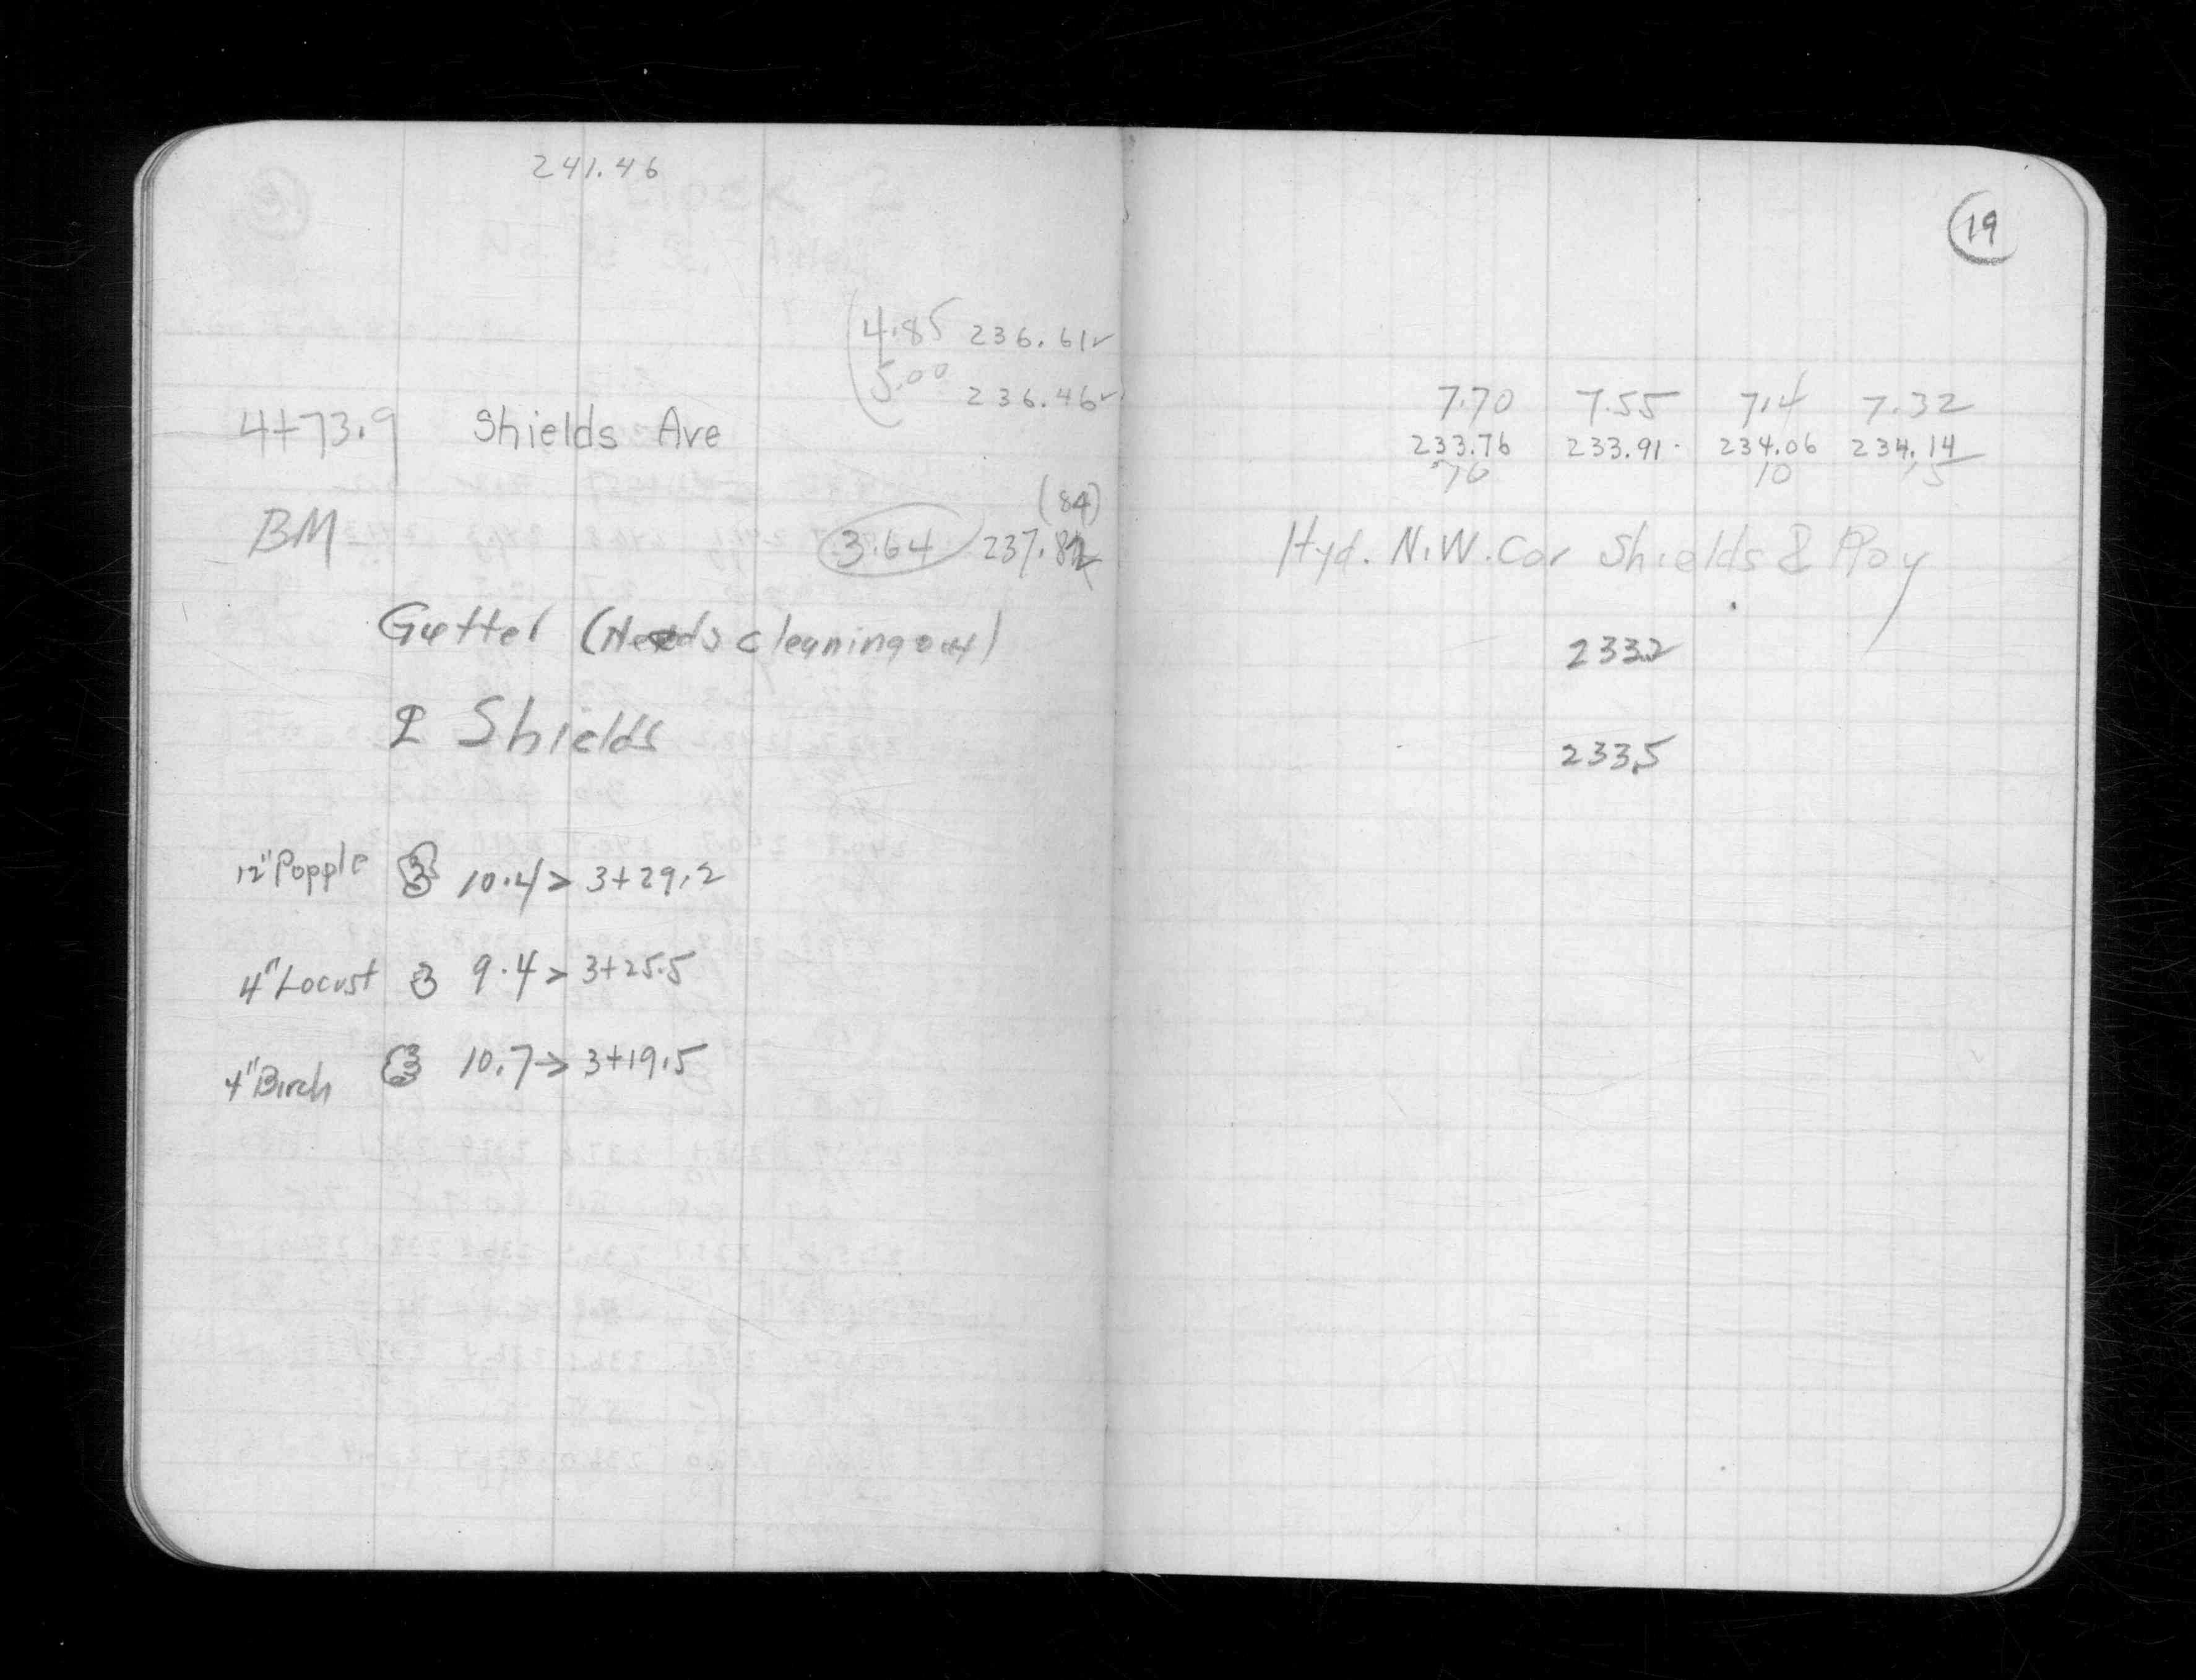 241.46
19
4.85 236.61✓
5.00 236.46✓
4+73.9 Shields Ave
7.70 7.55 7.4 7.32
233.76 233.91 234.06 234.14
70 10 15
(84)
BM 3.64 237.82
Hyd. N.W. Cor Shields & Roy
Gutter (Needs cleaning out)
2332
℄ Shields
233.5
12" Popple 10.4 > 3+29.2
4" Locust 9.4 > 3+25.5
4" Birch 10.7 → 3+19.5